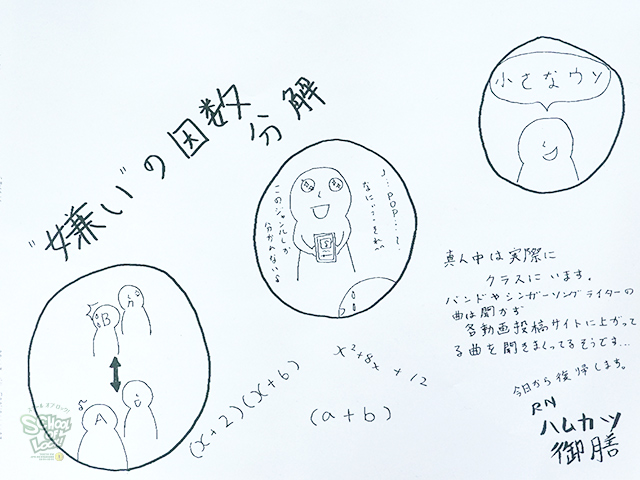 "嫌い"の因数分解
小さなウソ
J…POP…〜
なに……それ…
このジャンルしか
分かんないよ
B
A
x²+8x+12
(x+2)(x+6)
(a+b)
真人中は実際に
クラスにいます。
バンドやシンガーソングライターの
曲は聞かず
各動画投稿サイトに上がって
る曲を聞きまくってるそうです…
今日から復帰します。
RN
ハムカツ
御膳
SCHOOL OF LOCK!